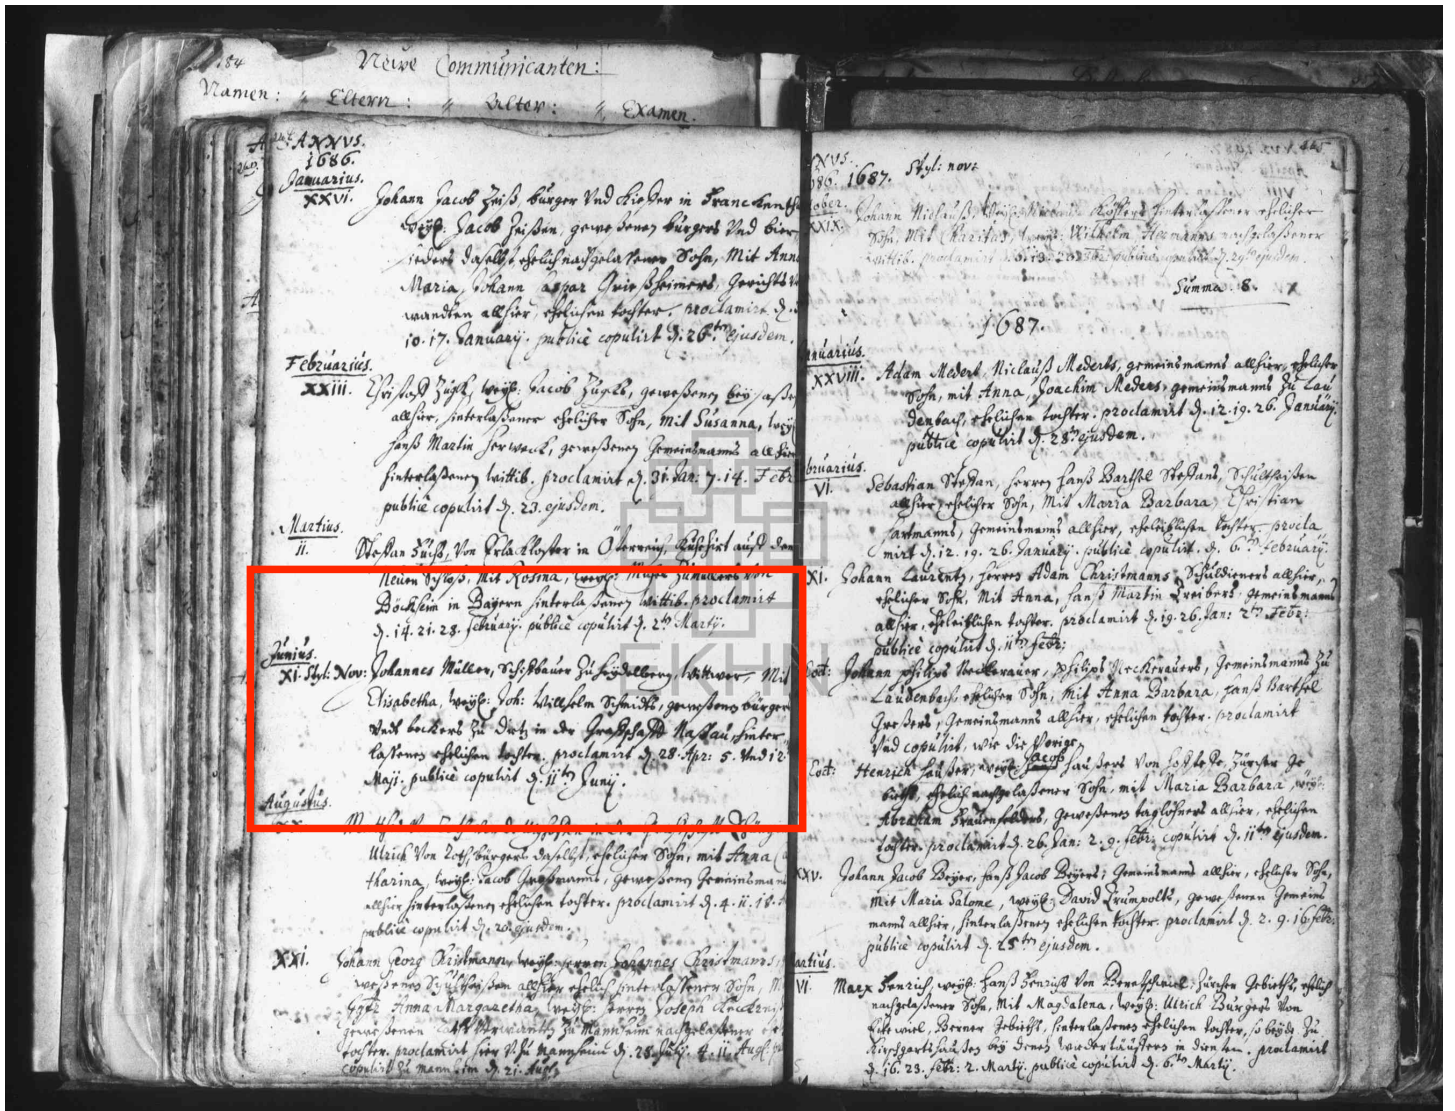 184
Neuwe Communicanten:
Namen: Eltern: Alter: Examen.
ANNVS.
1686.
Januarius.
XXVI. Johann Jacob Zeiß, bürger Vnd Kießer in Franckenth
weyl: Jacob Zeißen, geweßenen bürgers Vnd bier
sieders daselbst ehelich nachgelaßener Sohn, Mit Anna
Maria, Johann Caspar Grießheimers, Gerichts V
wandten allhier, ehelichen tochter. proclamirt d.
10. 17. January. publicè copulirt d. 26ten ejusdem.
Februarius.
XXIII. Christoff Zügk, weyl: Jacob Zügks, geweßenen beysaßen
allhier, hinterlaßener ehelicher Sohn, mit Susanna, weyl
Hanß Martin Herweck, geweßenen Gemeinsmanns allhier
hinterlaßenen wittib. proclamirt d. 31. Jan: 7. 14. Febr
publicè copulirt d. 23. ejusdem.
Martius.
II. Steffan Fuchß, Von Erlackloster in Österreich, Kuhhirt auff dem
Neuen Schloß, Mit Rosina, weyl: Zimmers Von
Böckheim in Bayern hinterlaßenen wittib. proclamirt
d. 14. 21. 28. February. publicè copulirt d. 2ten Martij.
Junius.
XI. Styl: Nov: Johannes Müller, Schiffbauer Zu Heydelberg, Wittwer, Mit
Elisabetha, weyl: Joh: Willhelm Schmidts, geweßenen bürgers
Vndt beckers Zu Dietz in der Graffschafft Naßau, hinter
laßenen ehelichen tochter. proclamirt d. 28. Apr: 5. Vnd 12.
Maij. publicè copulirt d. 11ten Junij.
Augustus.
Ulrich Von Roth bürgers daselbst, ehelicher Sohn, mit Anna Ca
tharina, weyl: Jacob Großmanns, geweßenen Gemeinsman
allhier hinterlaßenen ehelichen tochter. proclamirt d. 4. 11. 18.
publicè copulirt d. 20. ejusdem.
XXI. Johann Georg Christmann, weyl: Herren Johannes Christmanns,
weßenen Schultheißen allhier ehelich hinterlaßener Sohn, M
Anna Margaretha, weyl: Herren Joseph
geweßenen Rathsverwanten Zu Mannheim nachgelaßener ehe
tochter. proclamirt hier V. Zu Mannheim d. 28. July. 4. 11. Aug.
copulirt Zu Mannheim d. 21. Aug.
EKHN
465
NNVS.
686. 1687. Styl: nov:
tober.
XXIX. Johann Hinterlaßener ehelicher
Sohn, Mit Charitas, weyl: Wilhelm Hermanns nachgelaßener
wittib. proclamirt publicè copulirt d. 29ten ejusdem.
Summa. 8.
1687.
anuarius.
XXVIII. Adam Medert, Niclauß Mederts, gemeinsmanns allhier, ehelicher
Sohn, mit Anna, Joachim Meders, gemeinsmanns Zu Lau
denbach, ehelichen tochter. proclamirt d. 12. 19. 26. January.
publicè copulirt d. 28ten ejusdem.
bruarius.
VI. Sebastian Steffan, Herren Hanß Barthel Steffans, Schultheißen
allhier, ehelicher Sohn, Mit Maria Barbara, Christian
Hartmanns, Gemeinsmanns allhier, eheleiblichen tochter. procla
mirt d. 12. 19. 26. January. publicè copulirt. d. 6ten February.
XI. Johann Laurentz, Herren Adam Christmanns, Schuldieners allhier,
ehelicher Sohn, Mit Anna, Hanß Martin Treibers, Gemeinsmanns
allhier, eheleiblichen tochter. proclamirt d. 19. 26. Jan: 2ten Febr:
publicè copulirt d. 11ten Febr:
Eod: Johann Philips Neckerauer, Philips Neckerauers, Gemeinsmanns Zu
Laudenbach ehelicher Sohn, Mit Anna Barbara, Hanß Barthel
Großers, Gemeinsmanns allhier, ehelichen tochter. proclamirt
Vnd copulirt, wie die Vorige.
Eod: Henrich Haußer, weyl: Jacob Haußers Von Zürcher Ge
bieths, ehelich nachgelaßener Sohn, mit Maria Barbara, weyl:
Abraham Frauenfelders, Geweßenen taglöhners allhier, ehelichen
tochter. proclamirt d. 26. Jan: 2. 9. Febr: copulirt d. 11ten ejusdem.
XXV. Johann Jacob Beyer, Hanß Jacob Beyers, Gemeinsmanns allhier, ehelicher Sohn,
Mit Maria Salome, weyl: David Trumpolts, Geweßenen Gemeins
manns allhier, hinterlaßenen ehelichen tochter. proclamirt d. 2. 9. 16. Febr:
publicè copulirt d. 25ten ejusdem.
artius.
VI. Marx Henrich, weyl: Hanß Henrichs Von Zürcher Gebieths, ehelich
nachgelaßener Sohn, Mit Magdalena, weyl: Ulrich Burgers Von
Berner Gebieths, hinterlaßenen ehelichen tochter, so beyde Zu
Kirschgartshaußen bey denen wiedertäuffern in diensten. proclamirt
d. 16. 23. Febr: 2. Martij. publicè copulirt d. 6ten Martij.